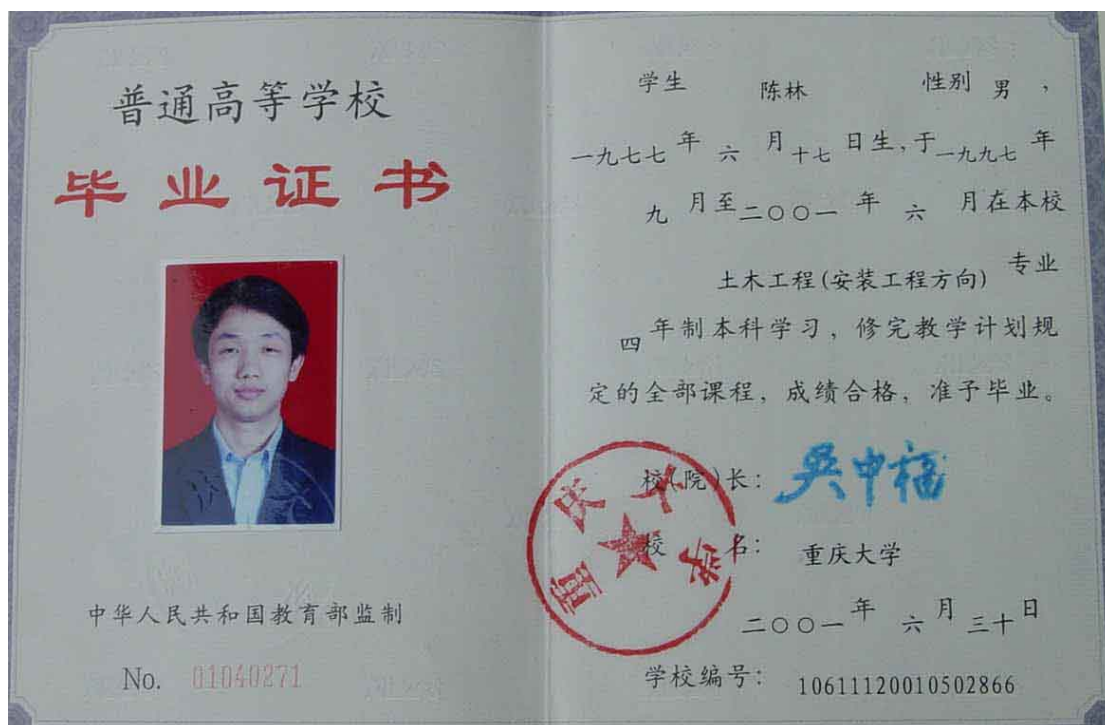 普通高等学校
毕业证书
中华人民共和国教育部监制
No. 01040271
学生 陈林 性别 男，
一九七七年六月十七日生，于一九九七年
九月至二〇〇一年六月在本校
土木工程(安装工程方向)专业
四年制本科学习，修完教学计划规
定的全部课程，成绩合格，准予毕业。
校(院)长：吴中福
校名：重庆大学
重庆大学
二〇〇一年六月三十日
学校编号：10611120010502866